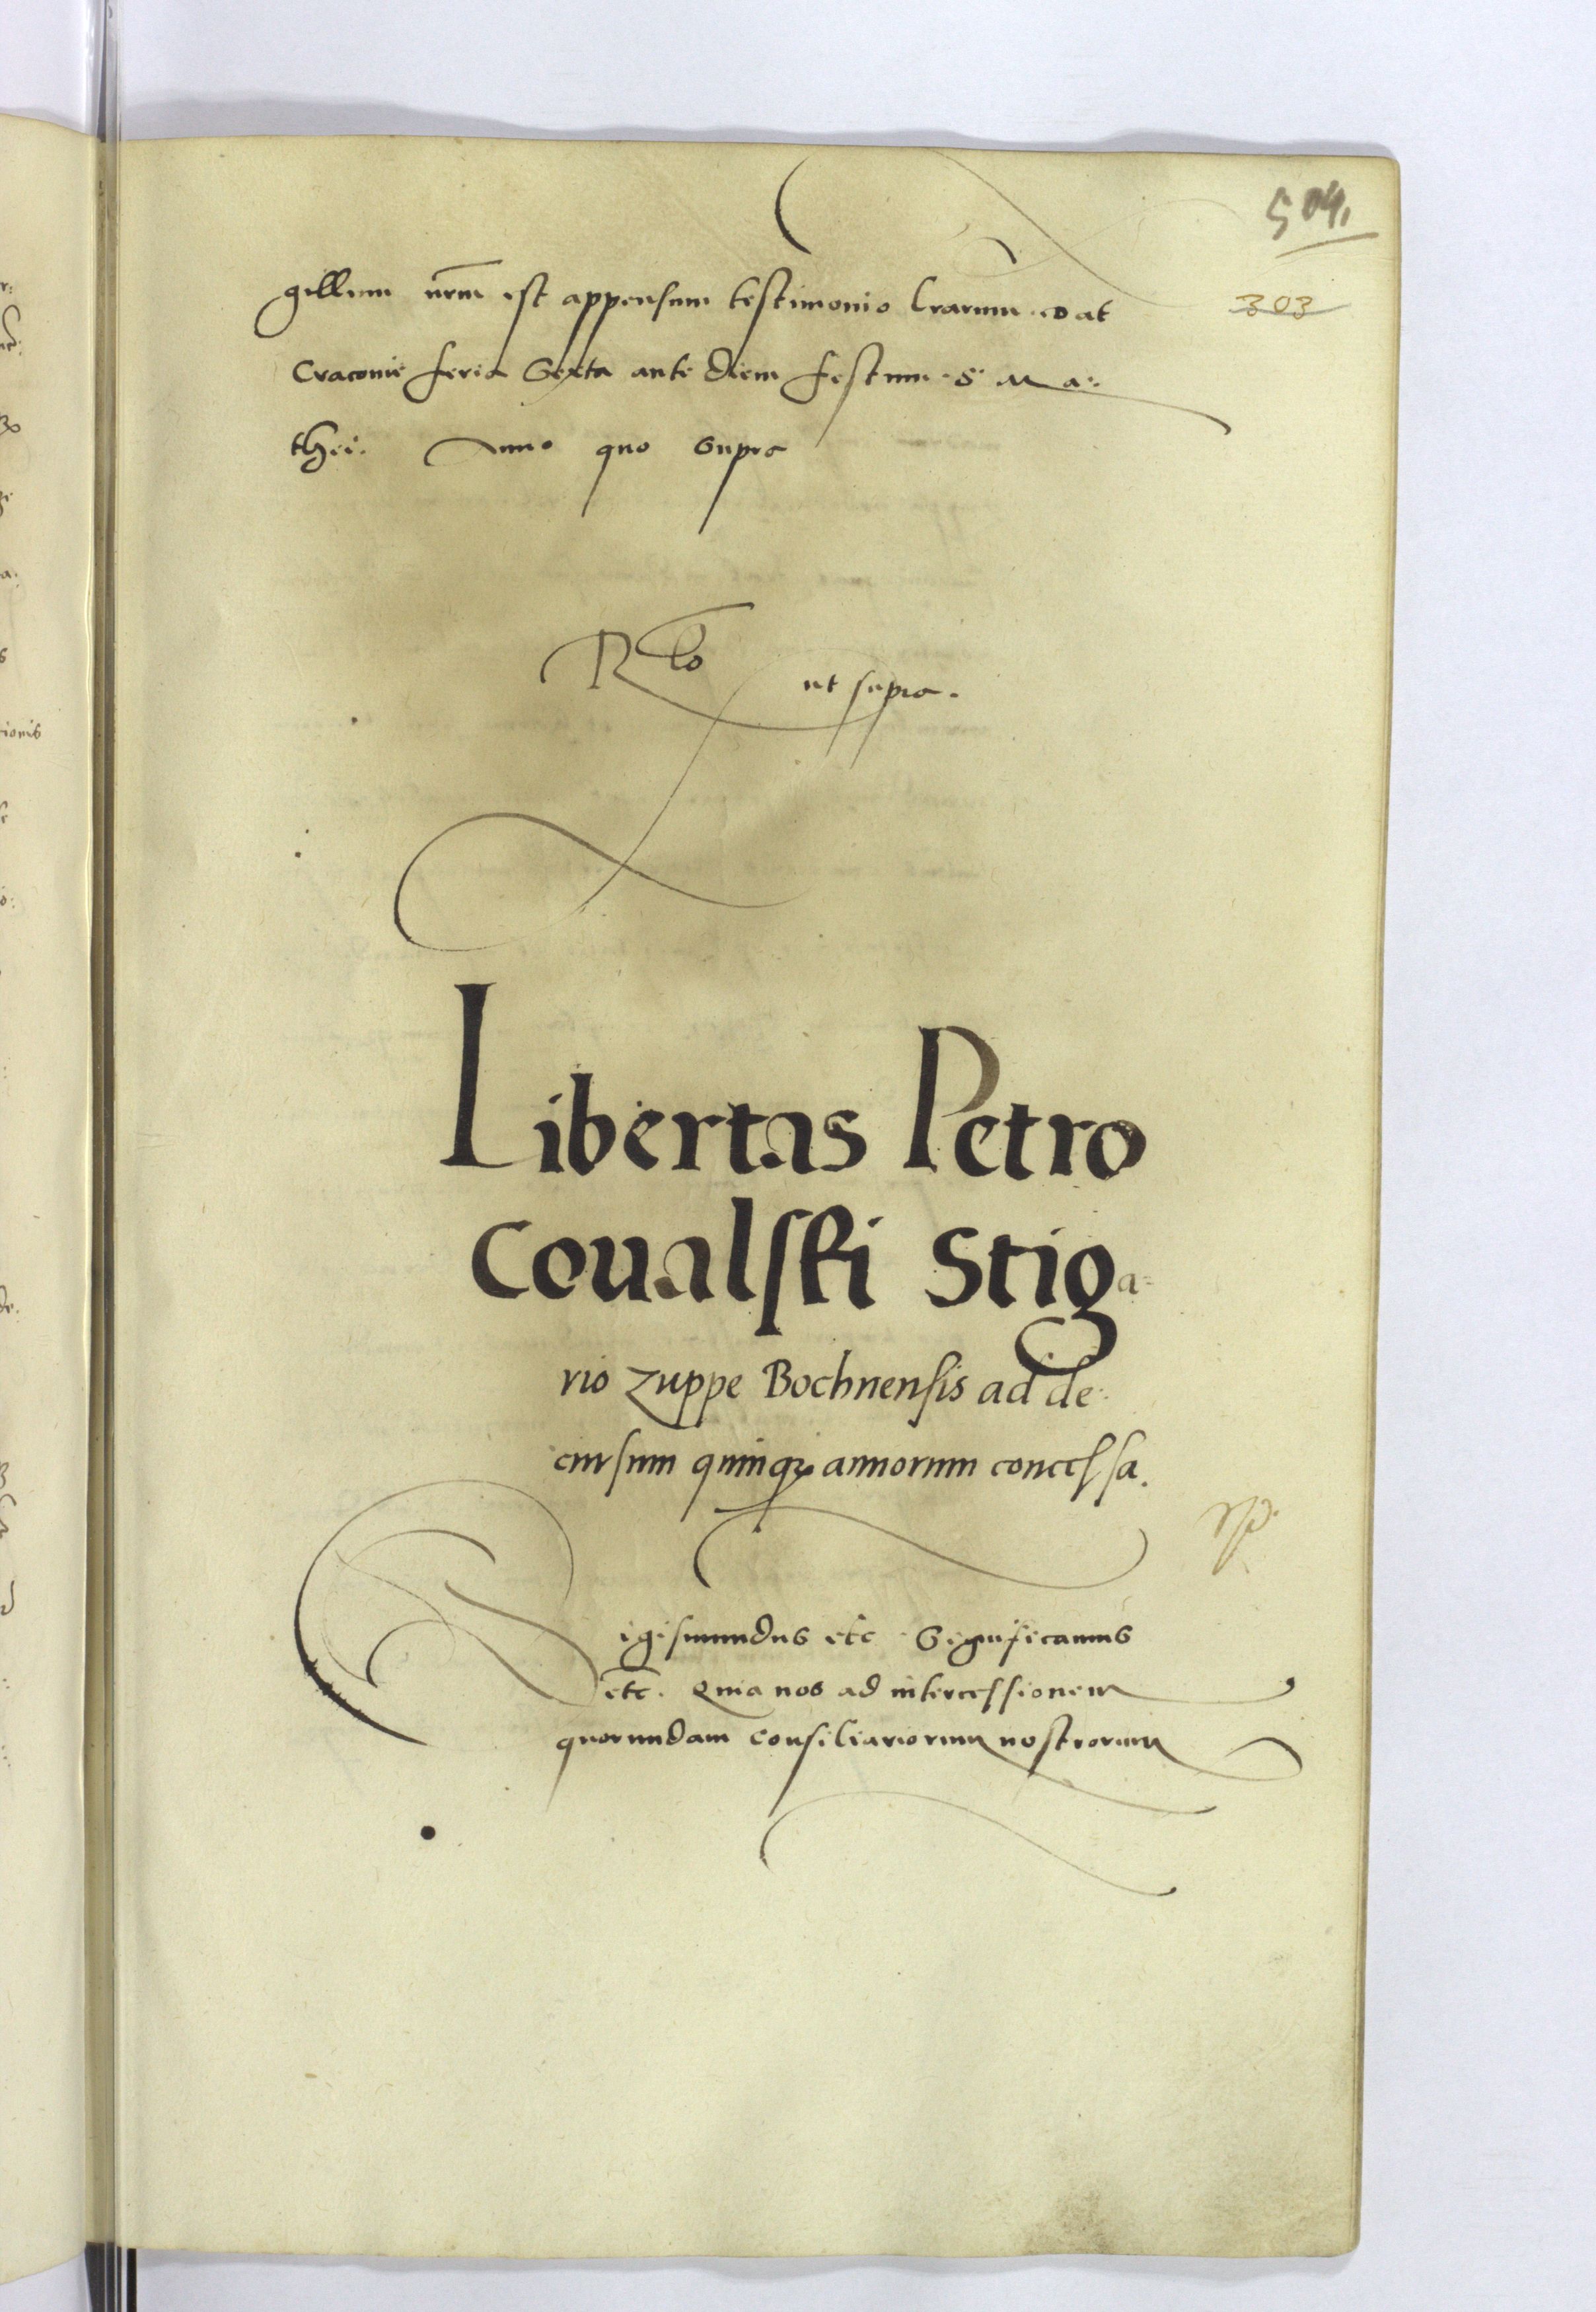 504.
303
gillum nrm est appensum testimonio lrarum. Dat
Cracovie feria Sexta ante diem festum. S. Ma:
thei. Anno quo Supra
Rlo ut supra.
Libertas Petro
Covalski Stiga=
rio zuppe Bochnensis ad de:
cursum quinqȝ annorum concessa.
Sigismundus etc. Significamus
etc. Quia nos ad intercessionem
quorundam consiliariorum nostrorum